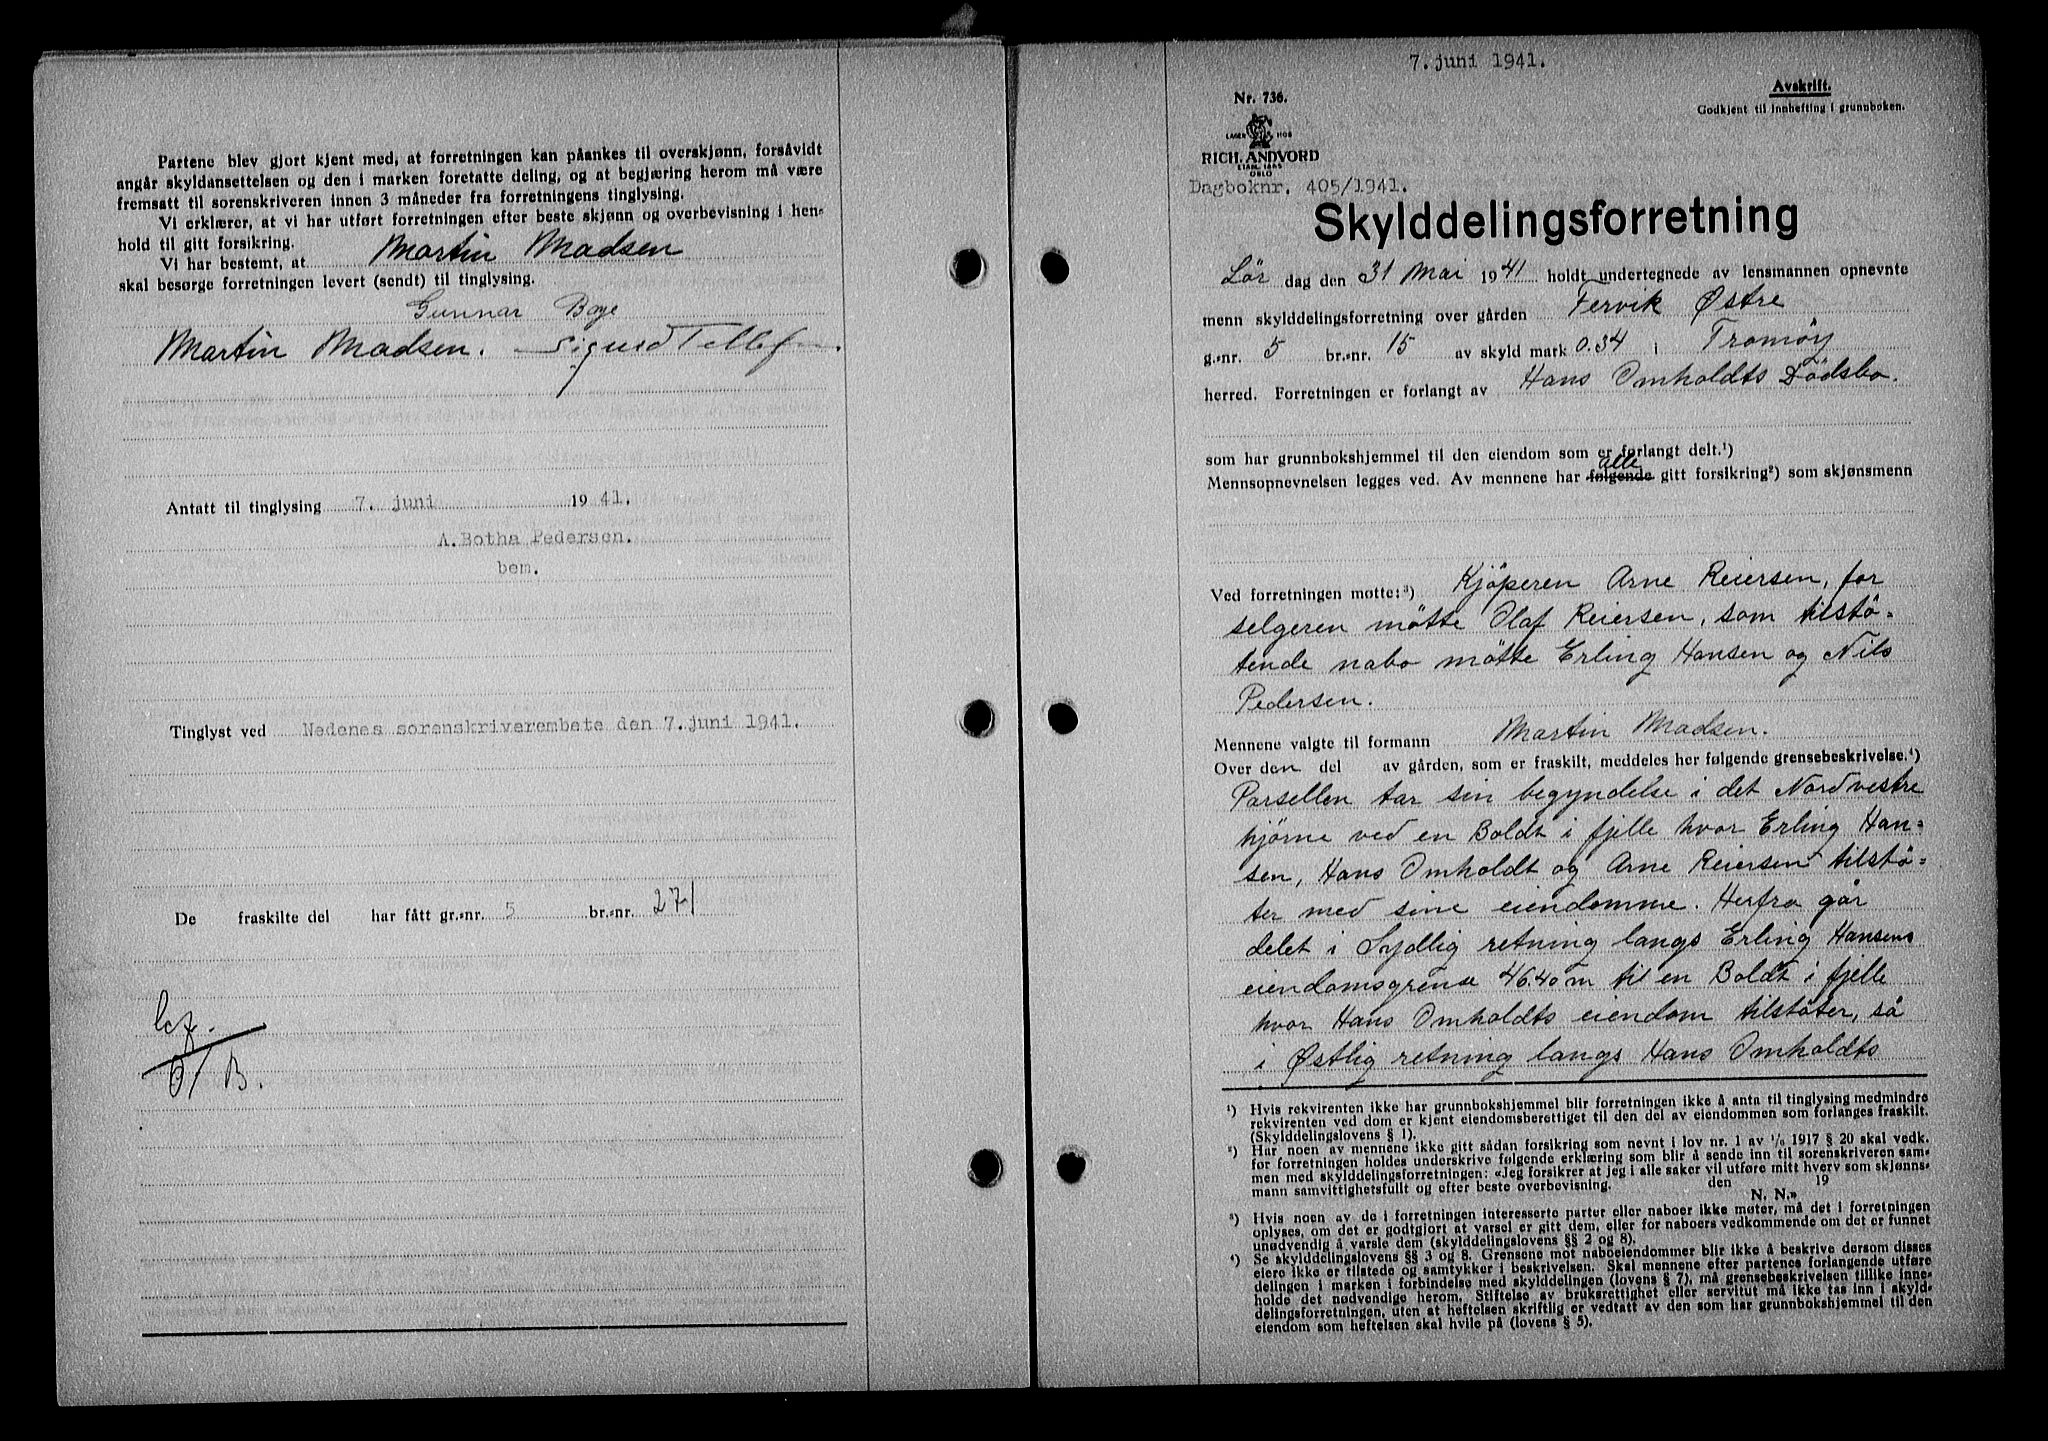 Partene blev gjort kjent med, at forretningen kan påankes til overskjønn, forsåvidt
angår skyldansettelsen og den i marken foretatte deling, og at begjæring herom må være
fremsatt til sorenskriveren innen 3 måneder fra forretningens tinglysing.
Vi erklærer, at vi har utført forretningen efter beste skjønn og overbevisning i hen-
hold til gitt forsikring.
Vi har bestemt, at Martin Madsen
skal besørge forretningen levert (sendt) til tinglysing.
Gunnar Boye
Martin Madsen. Sigurd Tellefsen.
Antatt til tinglysing 7. juni 1941.
A. Botha Pedersen.
bem.
Tinglyst ved Nedenes sorenskriverembete den 7. juni 1941.
De fraskilte del har fått gr.-nr. 5 br.-nr. 271
B.
7. juni 1941.
Avskrift.
Nr. 736.
Godkjent til innhefting i grunnboken.
LAGER HOS
RICH. ANDVORD
ETABL. 1865
OSLO
Dagboknr. 405/1941.
Skylddelingsforretning
Lör dag den 31 Mai 1941 holdt undertegnede av lensmannen opnevnte
menn skylddelingsforretning over gården Fervik Østre
g.-nr. 5 br.-nr. 15 av skyld mark 0.34 i Tromøy
herred. Forretningen er forlangt av Hans Omholdts Dödsbo.
som har grunnbokshjemmel til den eiendom som er forlangt delt.¹)
alle
Mennsopnevnelsen legges ved. Av mennene har følgende gitt forsikring²) som skjønsmenn
Ved forretningen møtte:³) Kjöperen Arne Reiersen, for
selgeren mötte Olaf Reiersen, som tilstö-
tende nabo mötte Erling Hansen og Nils
Pedersen.
Mennene valgte til formann Martin Madsen.
Over den del av gården, som er fraskilt, meddeles her følgende grensebeskrivelse.⁴)
Parsellen tar sin begyndelse i det Nordvestre
hjörne ved en Boldt i fjelle hvor Erling Han-
sen, Hans Omholdt og Arne Reiersen tilstö-
ter med sine eiendomme. Herfra går
delet i Sydlig retning langs Erling Hansens
eiendomsgrense 46.40 m til en Boldt i fjelle
hvor Hans Omholdts eiendom tilstöter, så
i Østlig retning langs Hans Omholdts
¹) Hvis rekvirenten ikke har grunnbokshjemmel blir forretningen ikke å anta til tinglysing medmindre
rekvirenten ved dom er kjent eiendomsberettiget til den del av eiendommen som forlanges fraskilt.
(Skylddelingslovens § 1).
²) Har noen av mennene ikke gitt sådan forsikring som nevnt i lov nr. 1 av 1/6 1917 § 20 skal vedk.
før forretningen holdes underskrive følgende erklæring som blir å sende inn til sorenskriveren sam-
men med skylddelingsforretningen: «Jeg forsikrer at jeg i alle saker vil utføre mitt hverv som skjønns-
mann samvittighetsfullt og efter beste overbevisning. den 19
N. N.»
³) Hvis noen av de i forretningen interesserte parter eller naboer ikke møter, må det i forretningen
oplyses, om det er godtgjort at varsel er gitt dem, eller for naboers vedkommende om det er funnet
unødvendig å varsle dem (skylddelingslovens §§ 2 og 8).
⁴) Se skylddelingslovens §§ 3 og 8. Grensene mot naboeiendommer blir ikke å beskrive dersom disses
eiere ikke er tilstede og samtykker i beskrivelsen. Skal mennene efter partenes forlangende utføre
delingen i marken i forbindelse med skylddelingen (lovens § 7), må grensebeskrivelsen tillike inne-
holde det nødvendige herom. Stiftelse av bruksrettighet eller servitut må ikke tas inn i skyld-
delingsforretningen, uten at heftelsen skriftlig er vedtatt av den som har grunnbokshjemmel til den
eiendom som heftelsen skal hvile på (lovens § 5).